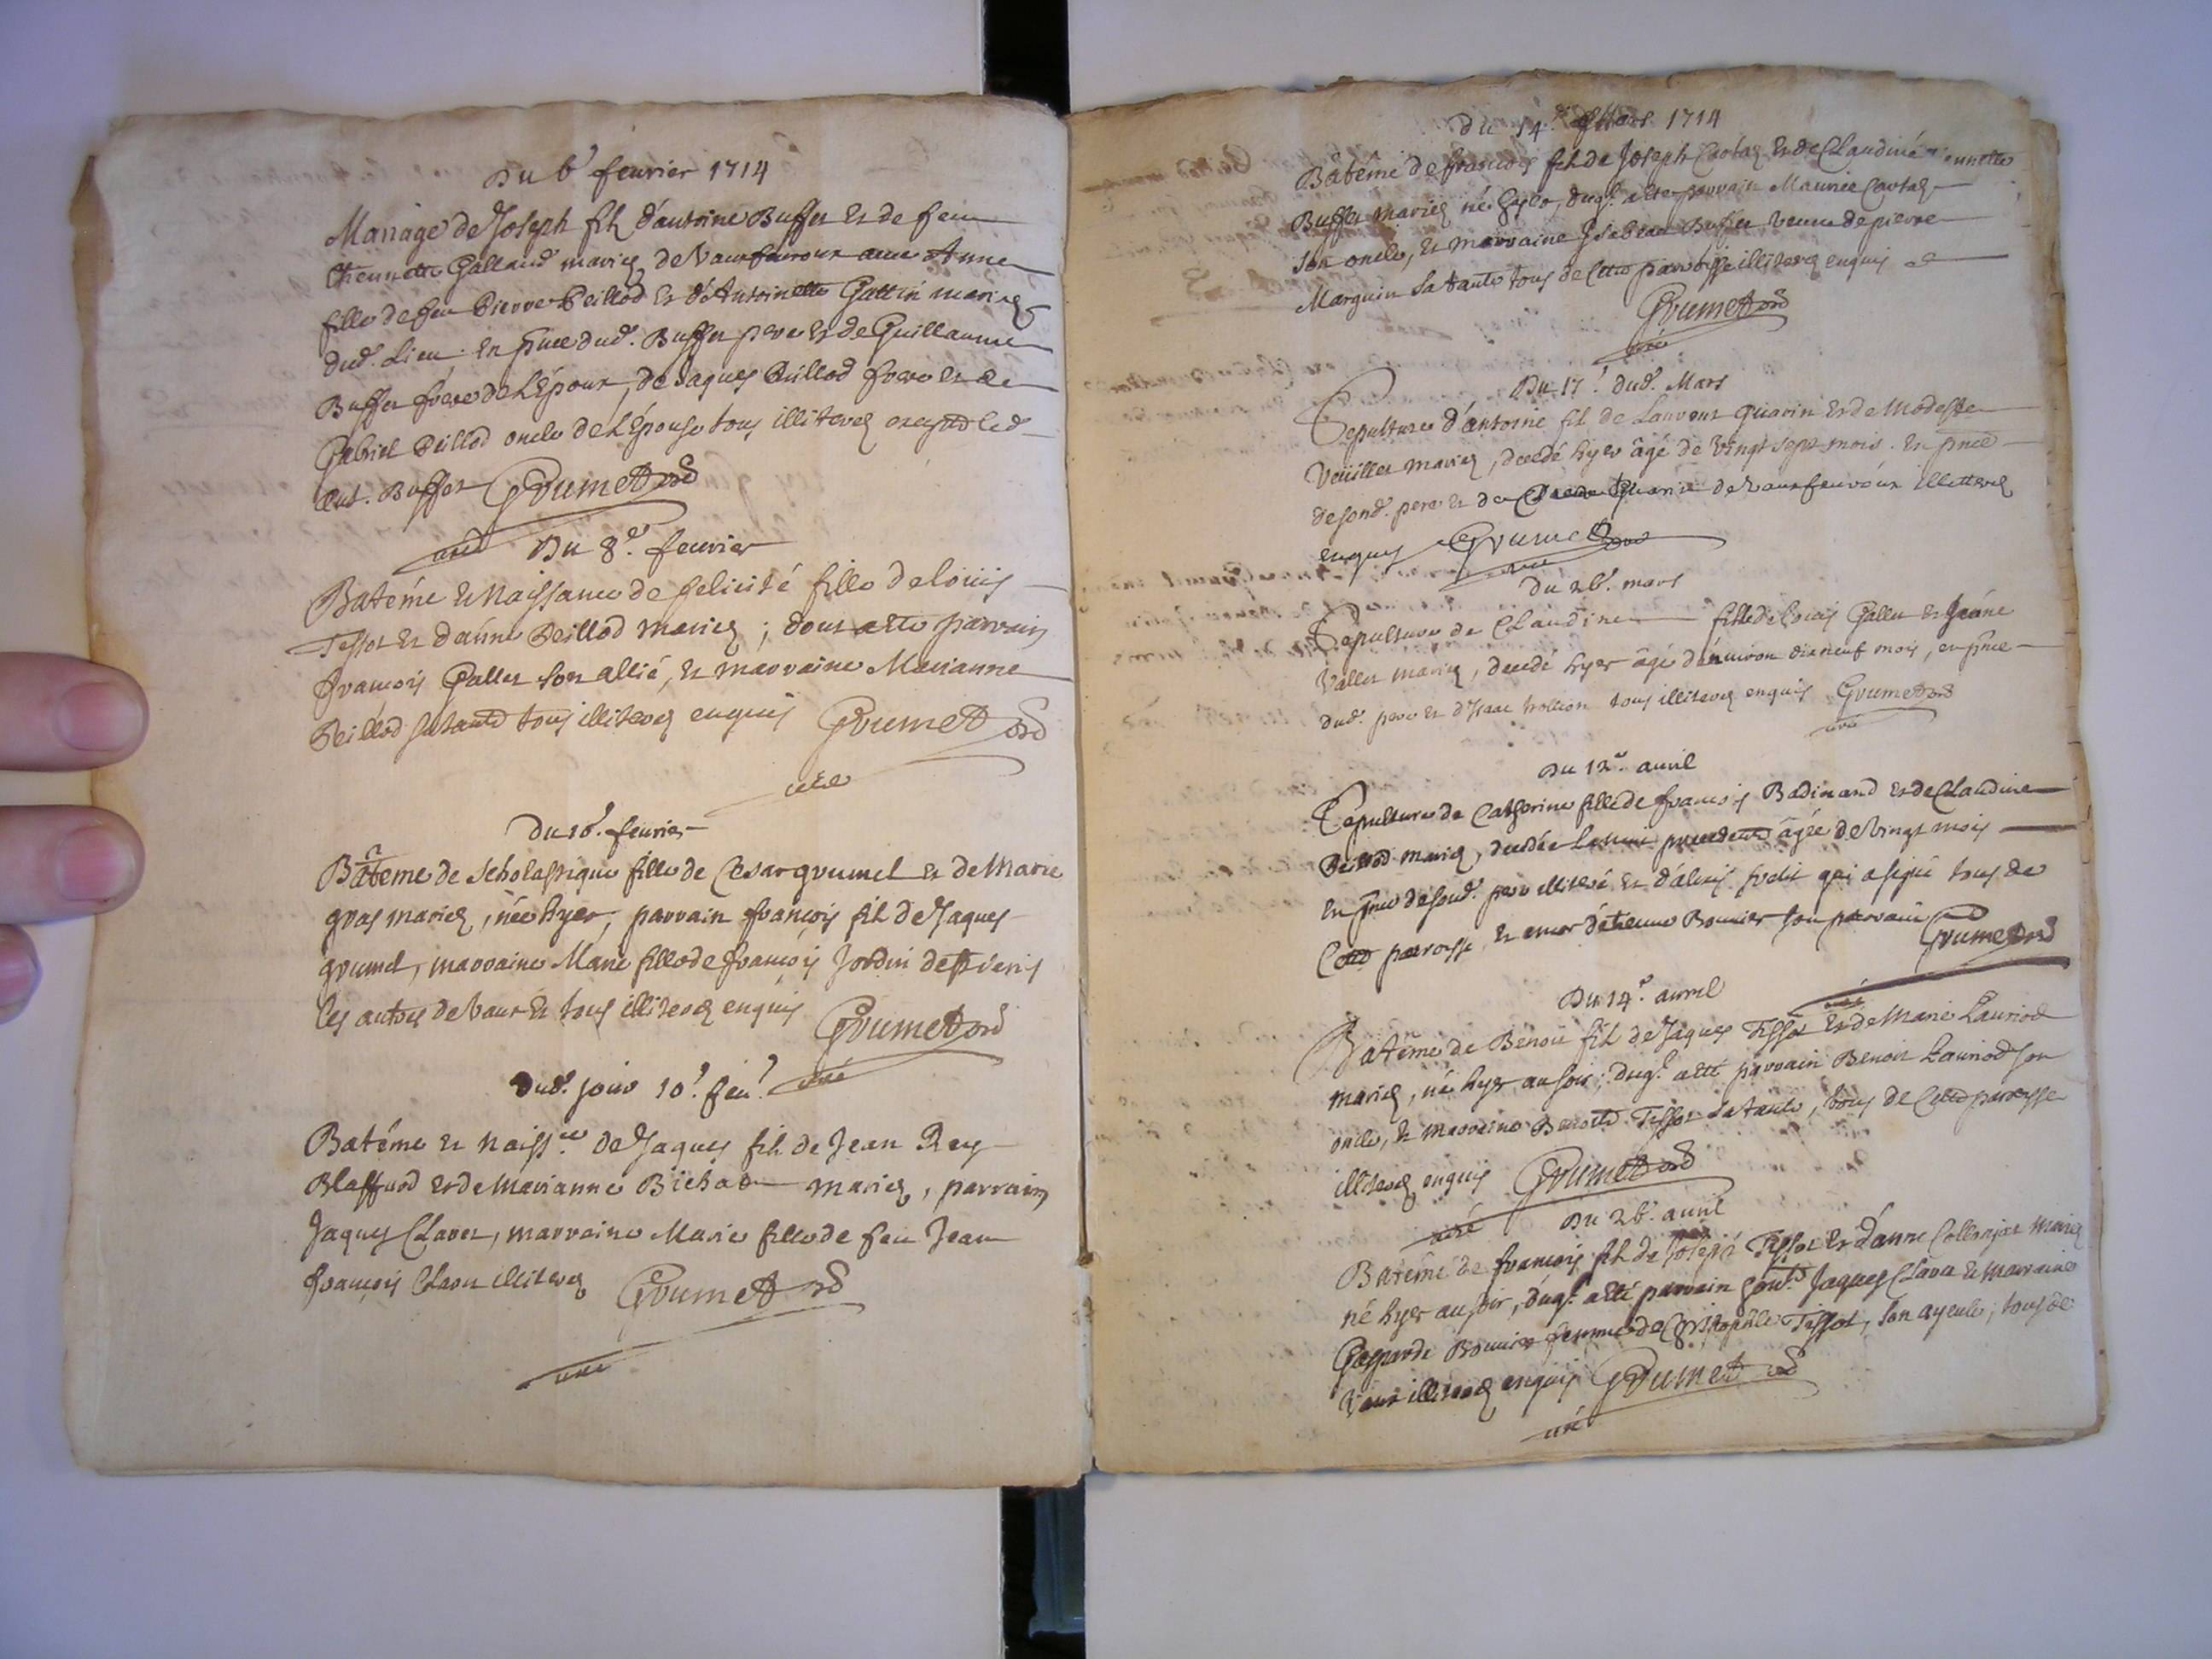 Du 6e fevrier 1714
Mariage de Joseph fils d'antoine Buffet et de feu
Etiennette Galland mariez de Vaux avec Anne
fille de feu Pierre Peillod et d'Antoinette Gallin mariez
dud. Lieu. En pnce dud. Buffet pere et de Guillaume
Buffet frere de L'Epoux, de Jaques Peillod frere et de
Gabriel Peillod oncle de L'Epouse tous illiterez excepté led.
Ant. Buffet Grumet ord
curé
Du 8e fevrier
Batéme et Naissance de felicité fille de loüis
Tissot et d'anne Peillod mariez ; dont a eté parrain
francois Gallet son allié, et marraine Marianne
Peillod sa tante tous illiterez enquis Grumet ord
curé
Du 10e fevrier
Batême de Scholastique fille de Cesar grumel et de Marie
gras mariez, née hyer, parrain françois fils de Jaques
grumel, marraine Marie fille de françois Jordin
les autres de Vaux et tous illiterez enquis Grumet ord
curé
Dud. jour 10e fev.
Batéme et naiss.ce de Jaques fils de Jean Rey
et de Marianne Bichat mariez, parrain
Jaques Clavet, marraine Marie fille de feu Jean
françois illiterez Grumet ord
curé
Du 14e Mars 1714
Batême de francois fils de Joseph Cartaz et de Claudine
Buffet mariez né hyer, duql. a eté parrain Maurice Cartaz
son oncle, et marraine Isabeau Buffet veuve de pierre
Marguin sa tante tous de cette parroisse illiterez enquis
Grumet ord
curé
Du 17e dud. Mars
Sepulture d'antoine fils de Laurent guarin et de Modeste
Veuillet mariez, decedé hyer âgé de vingt sept mois. En pnce
de sond. pere et de Guarin de Vaux illiterez
enquis Grumet ord
curé
Du 26e mars
Sepulture de Claudine fille de Loüis Gallet et Jeanne
Vallet mariez, decedé hyer âgé d'environ dix neuf mois, en pnce
dud. pere et d'Isaac tous illiterez enquis Grumet ord
curé
Du 12e avril
Sepulture de Catherine fille de francois Badinand et de Claudine
Peillod mariez, decedée âgée de vingt mois
en pnce de soud. pere illiteré et d'alexis qui a signé tous de
Cette parroisse, et d'étienne Bouvier son parrain Grumet ord
curé
Du 14e avril
Batême de Benoit fils de Jaques Tissot et de Marie Lauriod
mariez, né hyer au soir ; duql. a eté parrain Benoit Lauriod son
oncle, et marraine Benoite Tissot sa tante, tous de Cette parroisse
illiterez enquis Grumet ord
curé
Du 26e avril
Batême de francois fils de Joseph Tissot et d'anne mariez
né hyer au soir, duql. a eté parrain Jaques Clavet et marraine
Gasparde Bouvier femme de Christophle Tissot, son ayeule ; tous de
Vaux illiterez enquis Grumet ord
curé